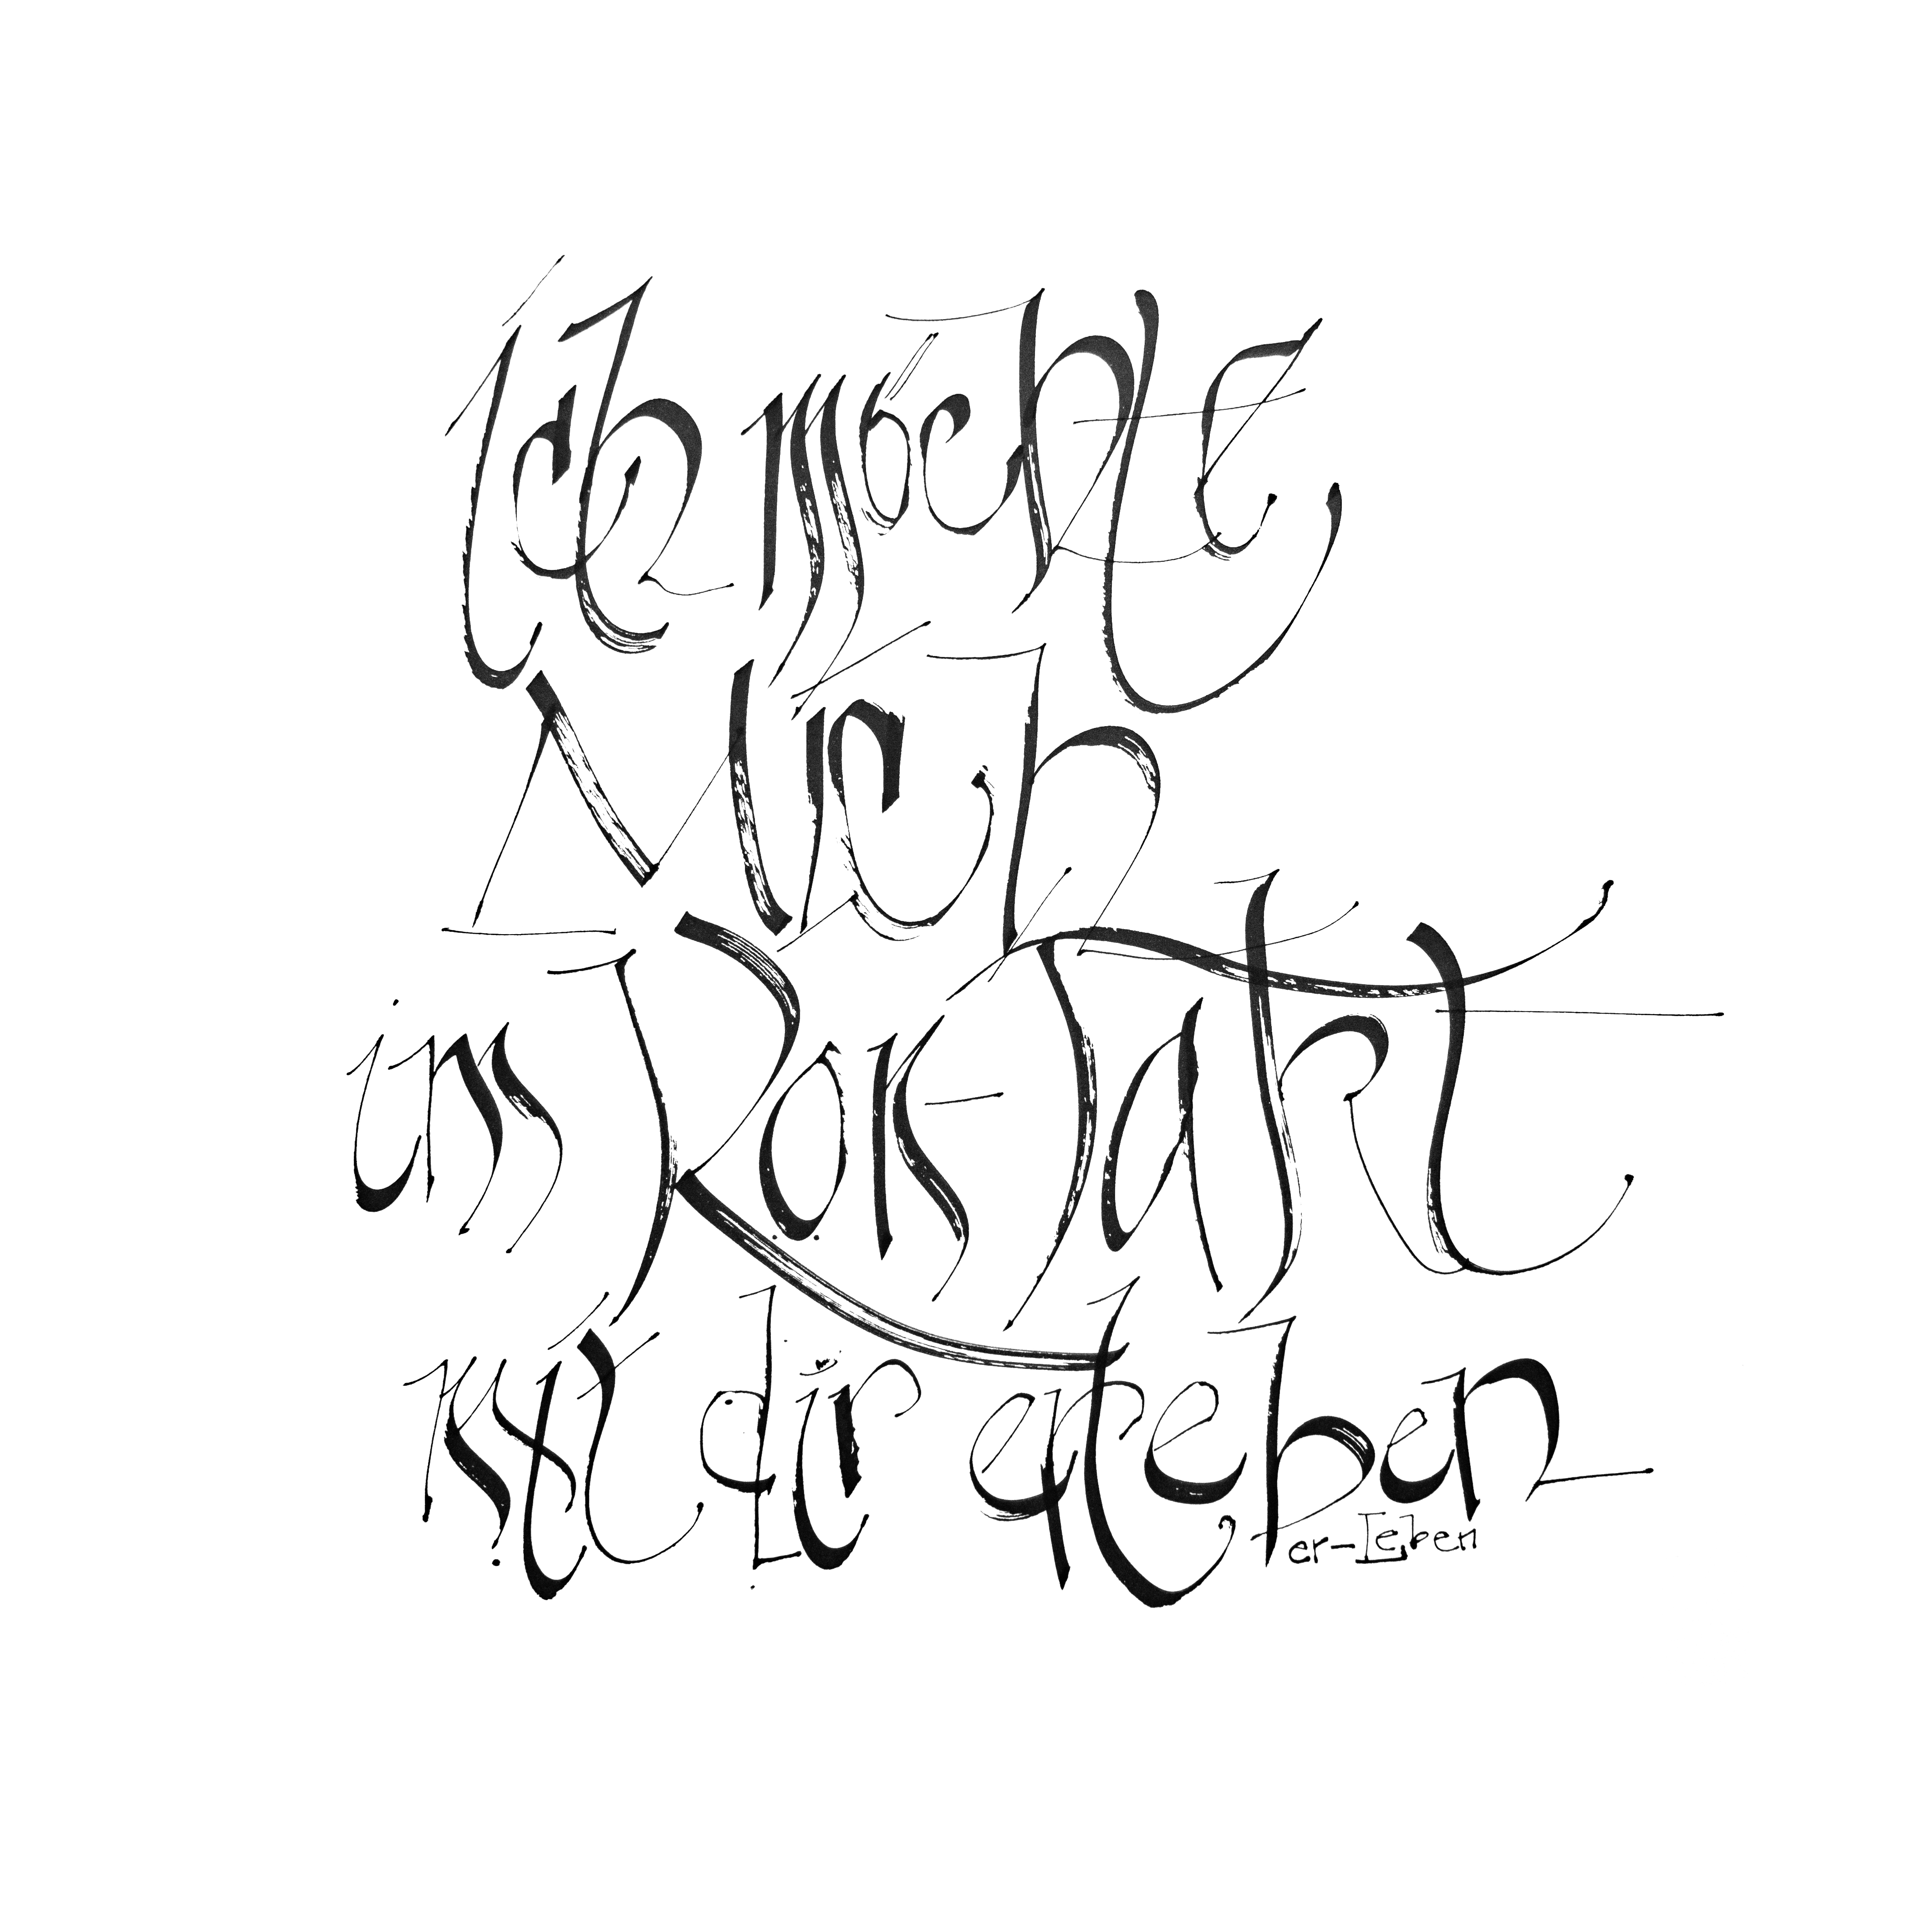 Ich möchte
Mich
im Kon-Takt
mit dir erleben
er-Leben